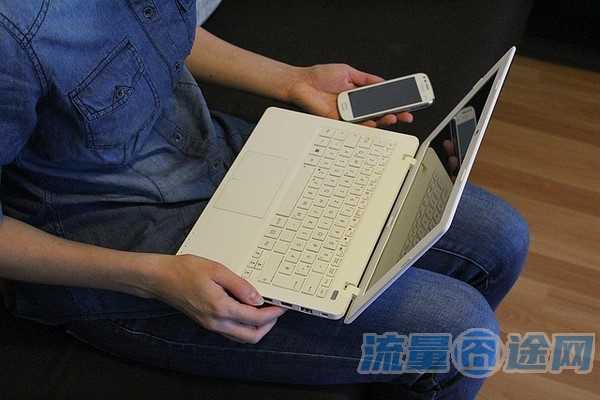 流量囧途网